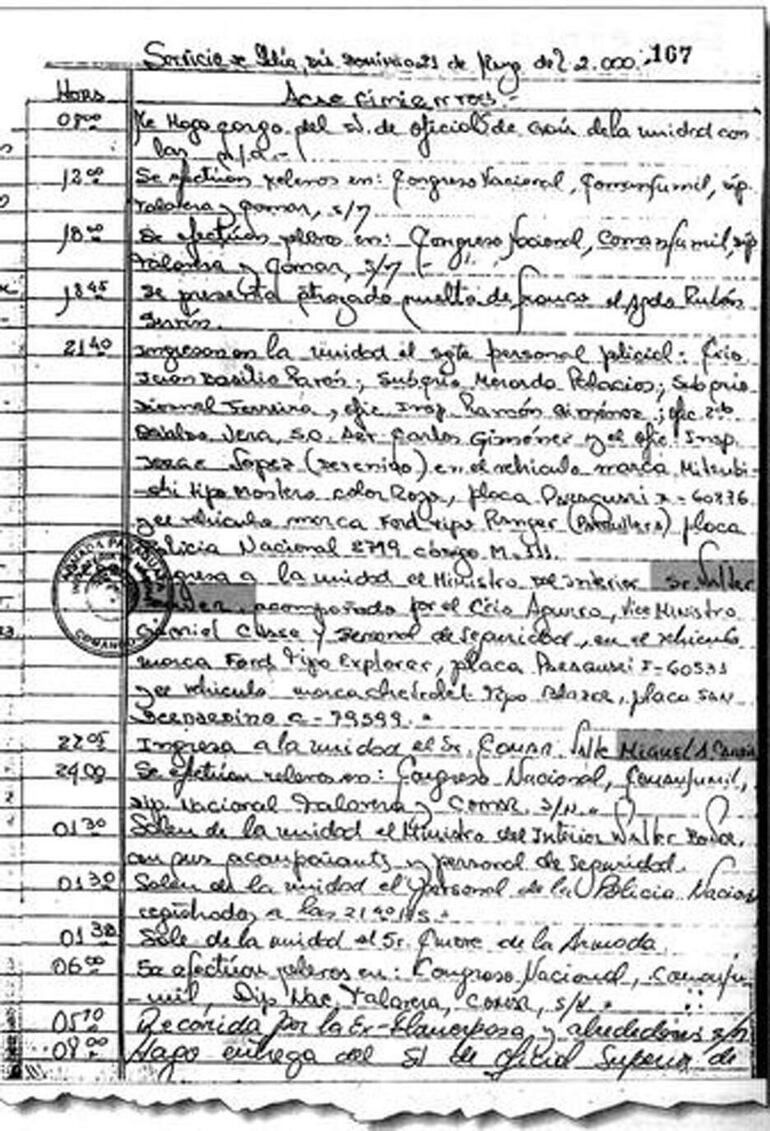 Servicio de Día, día Domingo 21 de Mayo del 2.000.- 167
HORS
Acaecimientos.-
08⁰⁰ Me Hago cargo del S/. de oficial de Guardia de la unidad con
las
12⁰⁰ Se efectúan relevos en: Congreso Nacional, Comanfumil, Dip.
Talavera y Comar, S/N
18⁰⁰ Se efectúan relevos en: Congreso Nacional, Comanfumil, Dip
Talavera y Comar, S/N
18⁴⁵ Se presenta atrazado vuelta de franco el Rubén
21⁴⁰ Ingresan en la unidad el sgte personal policial: Crio
Juan Basilio Pavón; Subcrio Merardo Palacios; Subcrio
Ferreira, ofic. Insp. Ramón Giménez; ofic 2do
Osvaldo Vera, S.O. Carlos Giménez y el ofic. Insp.
Jorge López (Detenido) en el vehículo marca Mitsubi-
-shi tipo Montero color Rojo, placa Paraguari 60836
y el vehículo marca Ford tipo Ranger (Patrullera) placa
Policia Nacional 2719
Ingresa a la unidad el Ministro del Interior Sr. Walter
Bower, acompañado por el Crio Aguero, Vice Ministro
y Personal de Seguridad, en el vehículo
marca Ford Tipo Explorer, placa Paraguari 60531
y el vehículo marca Chevrolet tipo Blazer, placa San
Bernardino 79599.
22⁰⁵ Ingresa a la unidad el Sr. COMAR Miguel A.
24⁰⁰ Se efectúan relevos en: Congreso Nacional, Comanfumil,
Dip. Nacional Talavera y COMAR, S/N.
01³⁰ Salen de la unidad el Ministro del Interior Walter Bower,
con sus acompañantes y personal de Seguridad.
01³⁰ Salen de la unidad el personal de la Policia Nacional
registrados a las 21⁴⁰ HS.
01³² Sale de la unidad el Sr. de la Armada.
06⁰⁰ Se efectúan relevos en: Congreso Nacional, Comanfu-
-mil, Dip. Nac. Talavera, COMAR, S/N.
05¹⁰ Recorrida por la Ex- y alrededores S/N
08⁰⁰ Hago entrega del S/ de Oficial Superior de
ARMADA PARAGUAYA
COMANDO